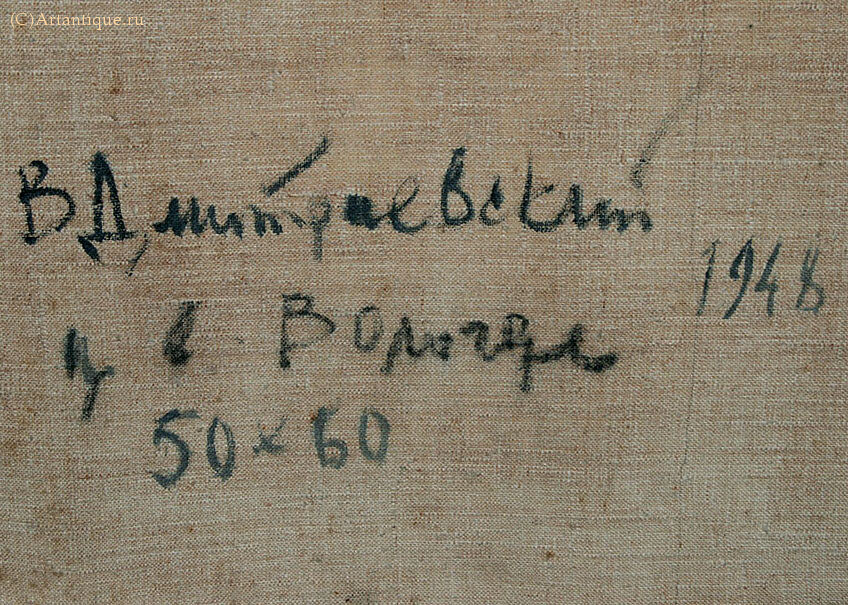 (C)Artantique.ru
В Дмитриевский
1948
ц в Вологде
50×60